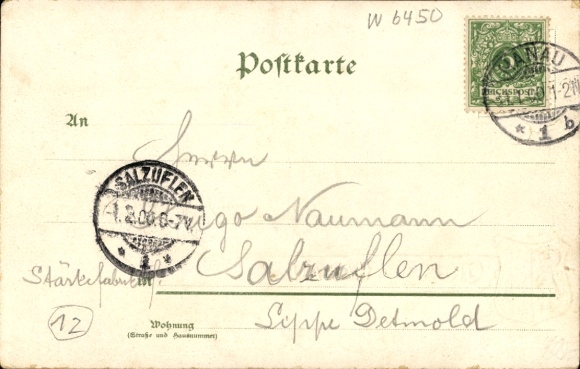 W 6450
Postkarte
REICHSPOST
HANAU
1-2N
* 1 b
An
Herrn
SALZUFLEN
1.2.00.6-7V.
* 1 *
Hugo Naumann
Salzuflen
Stärkefabrik
in
Lippe Detmold
12
Wohnung
(Straße und Hausnummer)